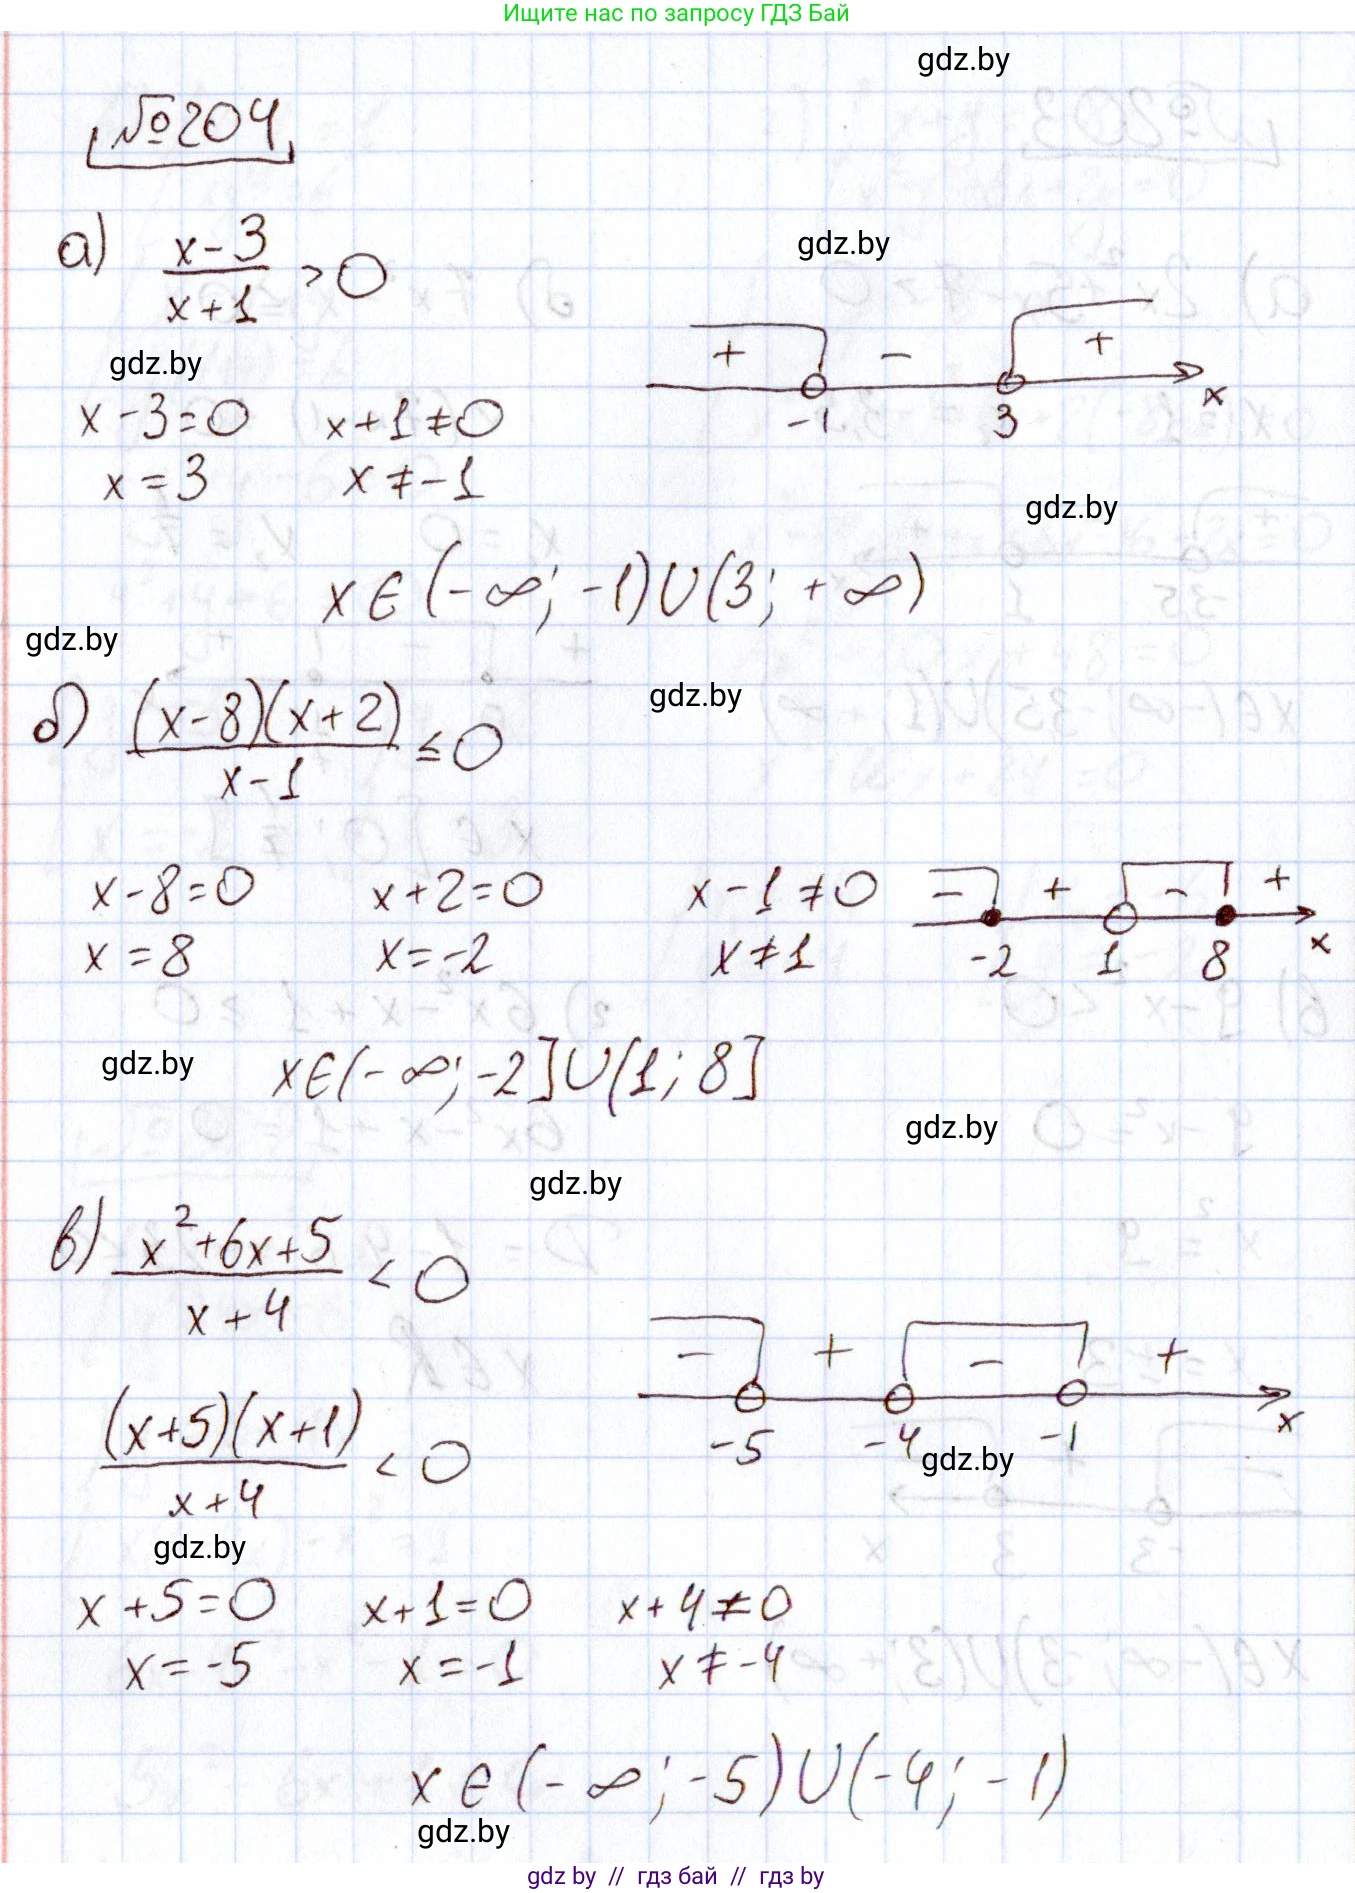 Ищите нас по запросу ГДЗ Бай
gdz.by
№204
а) (x-3)/(x+1) > 0
gdz.by
+ - +
-1 3 x
gdz.by
x-3=0 x+1≠0
x=3 x≠-1
gdz.by
x∈(-∞; -1)∪(3; +∞)
gdz.by
gdz.by
б) ((x-8)(x+2))/(x-1) ≤ 0
x-8=0 x+2=0 x-1≠0
x=8 x=-2 x≠1
- + - +
-2 1 8 x
gdz.by
x∈(-∞; -2]∪(1; 8]
gdz.by
gdz.by
в) (x²+6x+5)/(x+4) < 0
- + - +
-5 -4 -1 x
gdz.by
((x+5)(x+1))/(x+4) < 0
gdz.by
x+5=0 x+1=0 x+4≠0
x=-5 x=-1 x≠-4
x∈(-∞; -5)∪(-4; -1)
gdz.by
gdz.by // гдз бай // гдз by